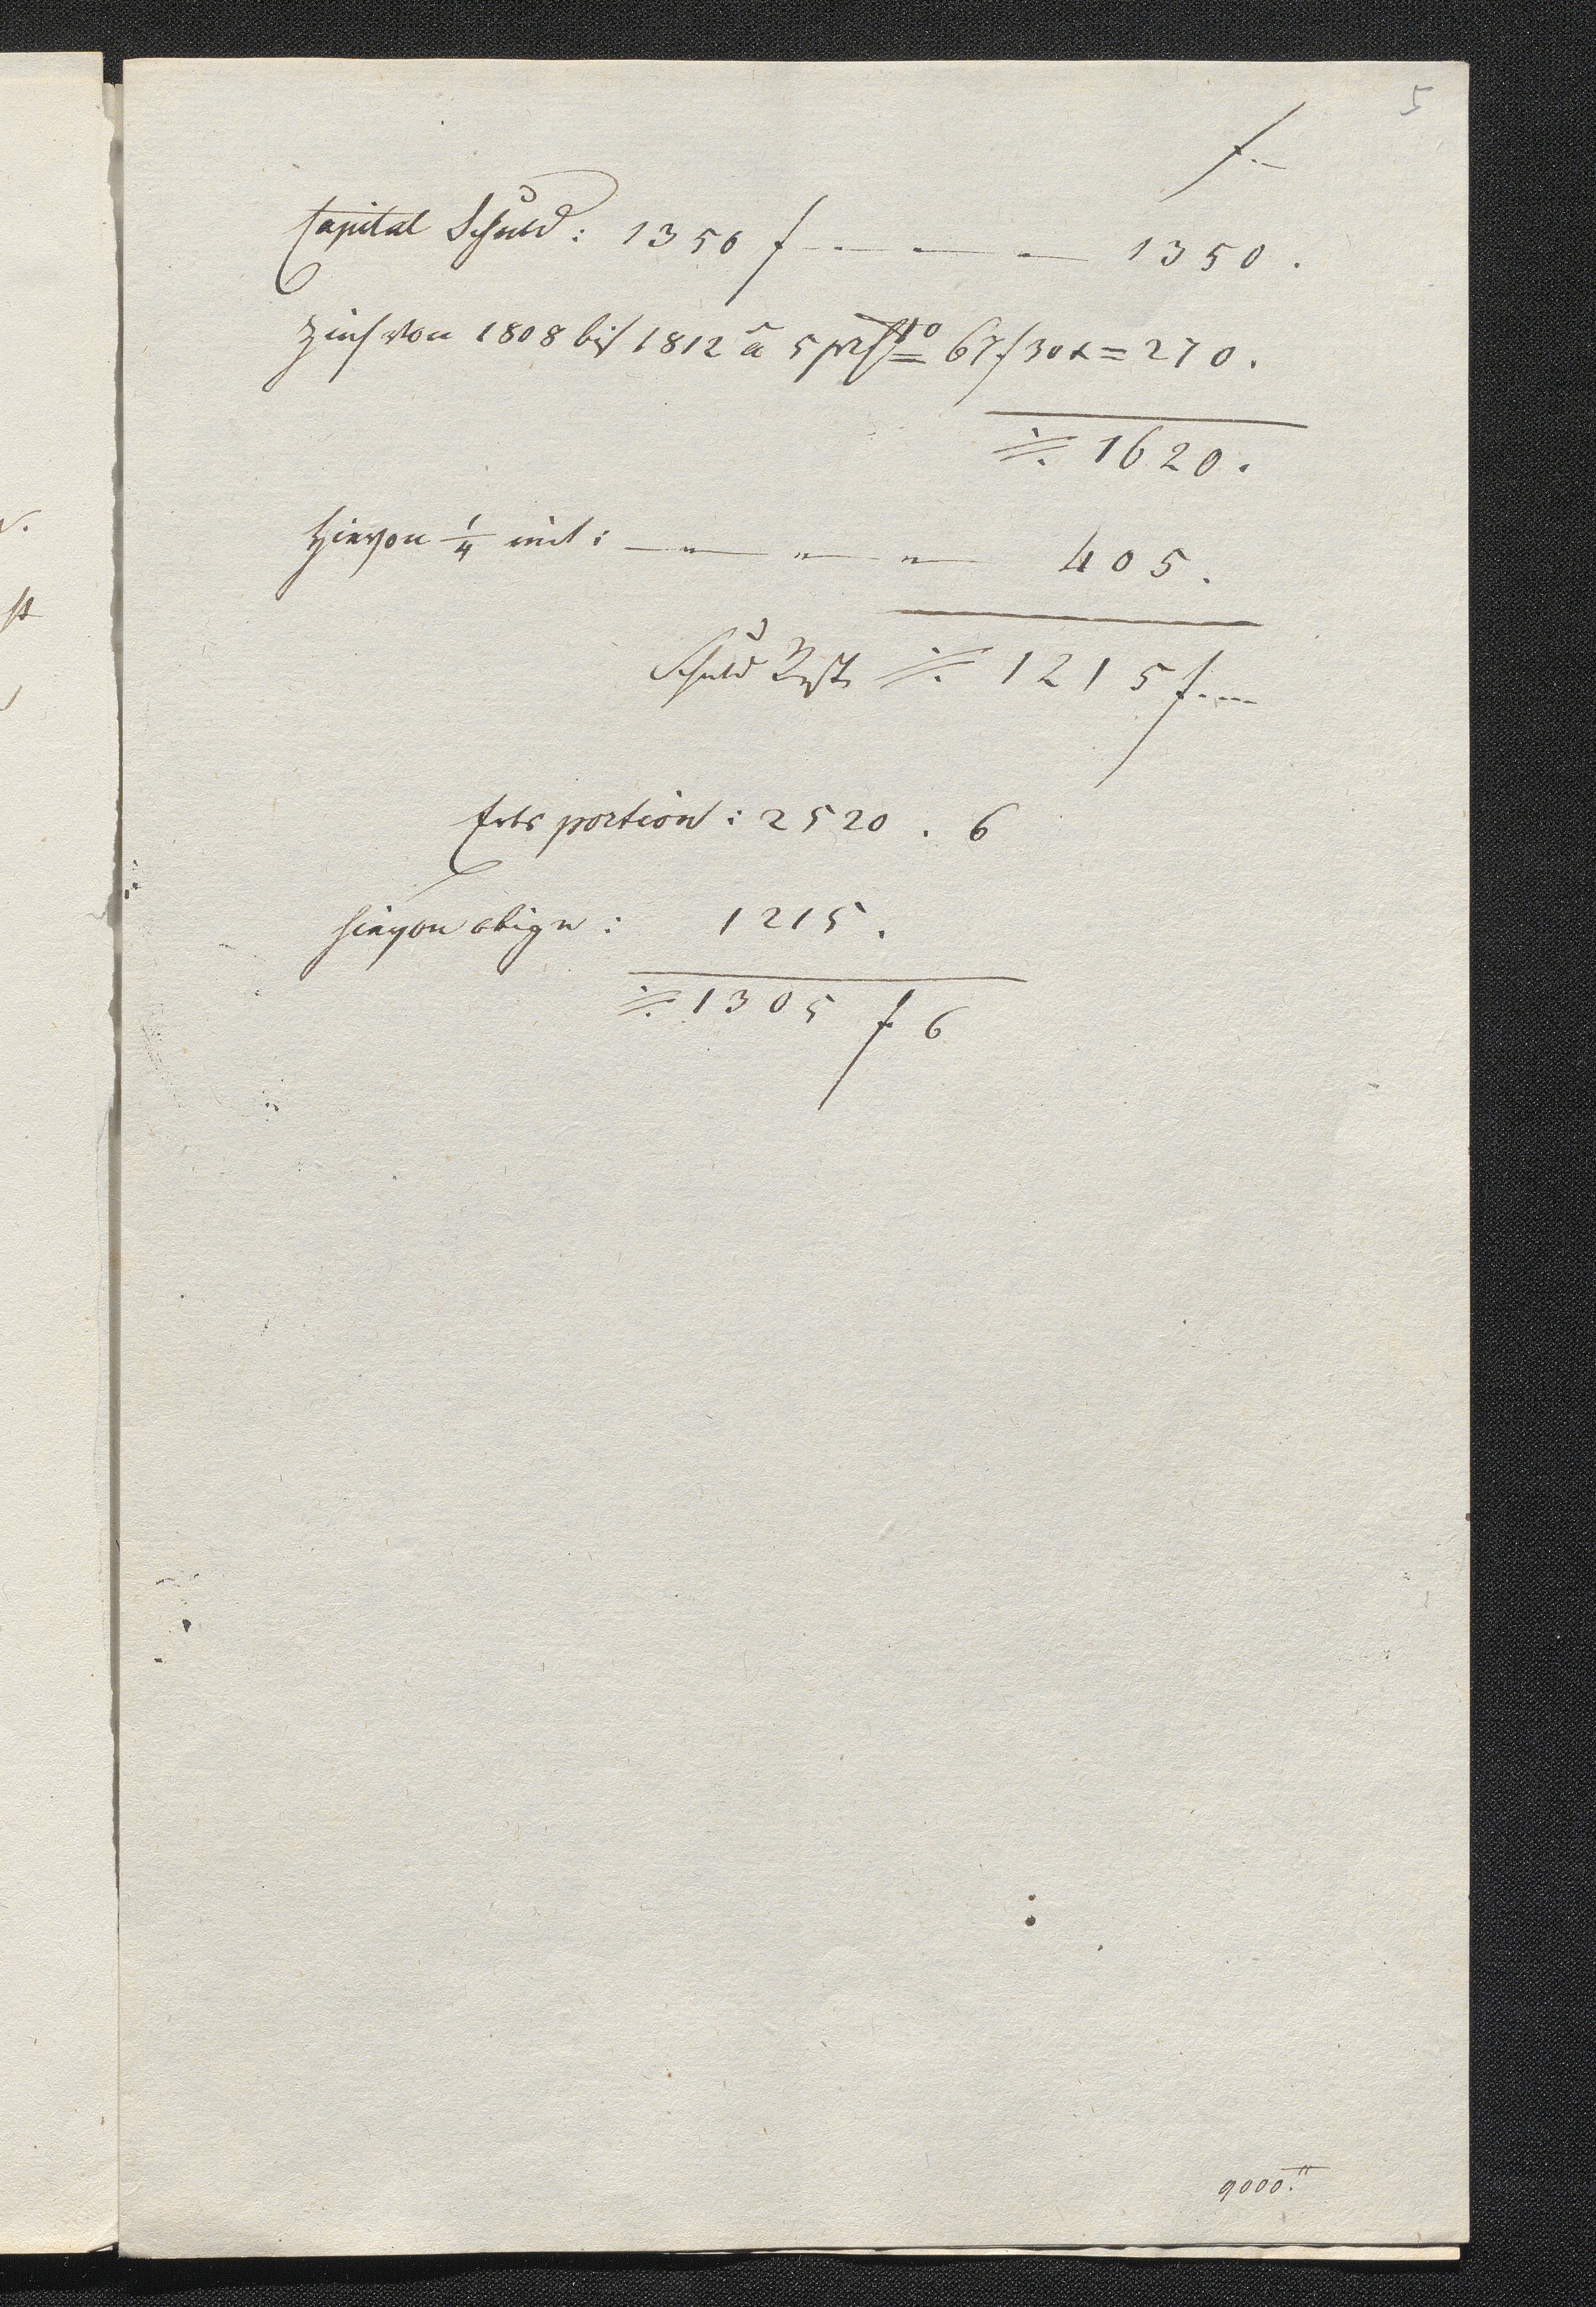 5
f --
Capital Schuld: 1350 f - - - 1350.
Zins von 1808 bis 1812 à 5 prCto = 67 f 30 x = 270.
./. 1620.
Hievon ¼ mit: - " - " - " - 405.
Schuld Rest ./. 1215 f. --
Erbs portion: 2520. 6
hievon obige: 1215.
./. 1305 f 6
9000."